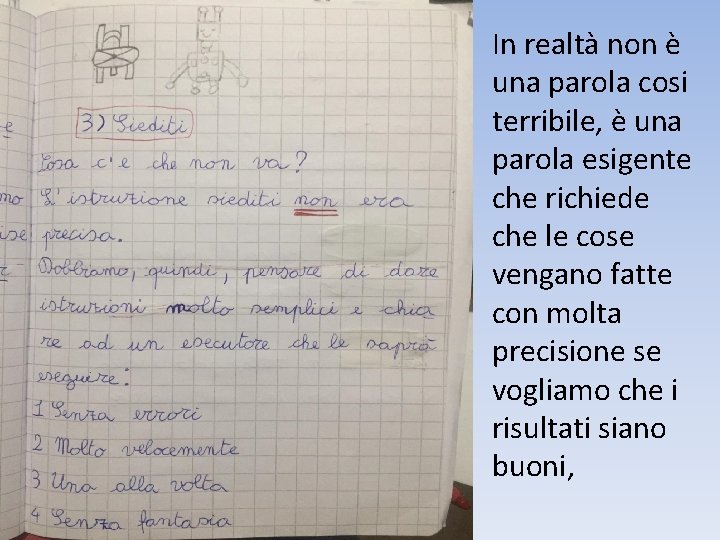 3) Siediti
Cosa c'e che non va?
L'istruzione siediti non era
precisa.
Dobbiamo, quindi, pensare di dare
istruzioni molto semplici e chia
re ad un esecutore che le saprà
eseguire:
1 Senza errori
2 Molto velocemente
3 Una alla volta
4 Senza fantasia
In realtà non è
una parola cosi
terribile, è una
parola esigente
che richiede
che le cose
vengano fatte
con molta
precisione se
vogliamo che i
risultati siano
buoni,